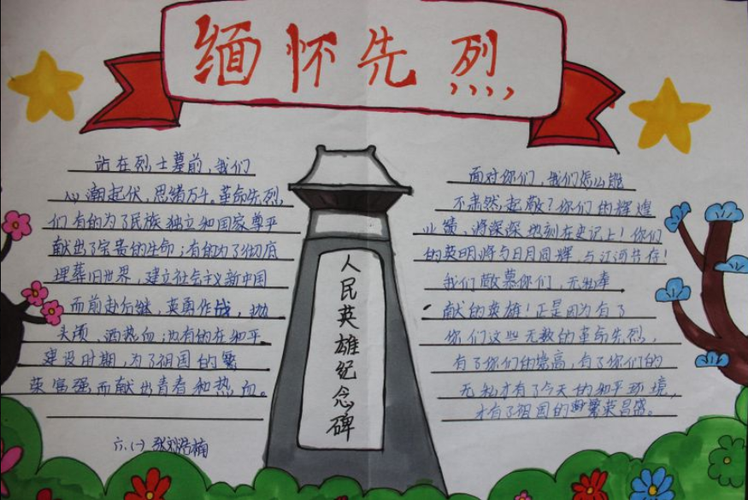 缅怀先烈
站在烈士墓前，我们
心潮起伏，思绪万千，革命先烈，
们有的为了民族独立和国家尊严
献出了宝贵的生命；有的为了彻底
埋葬旧世界，建立社会主义新中国
而前赴后继，英勇作战，抛
头颅，洒热血；也有的在和平
建设时期，为了祖国的繁
荣富强而献出青春和热血。
六.(一)
人民英雄纪念碑
面对你们，我们怎么能
不肃然起敬？你们的辉煌
业绩，将深深地刻在史记上！你们
的英明将与日月同辉，与江河共存！
我们敬慕你们，无私奉
献的英雄！正是因为有了
你们这些无数的革命先烈，
有了你们的崇高，有了你们的
无私才有了今天的和平环境，
才有了祖国的繁荣昌盛。